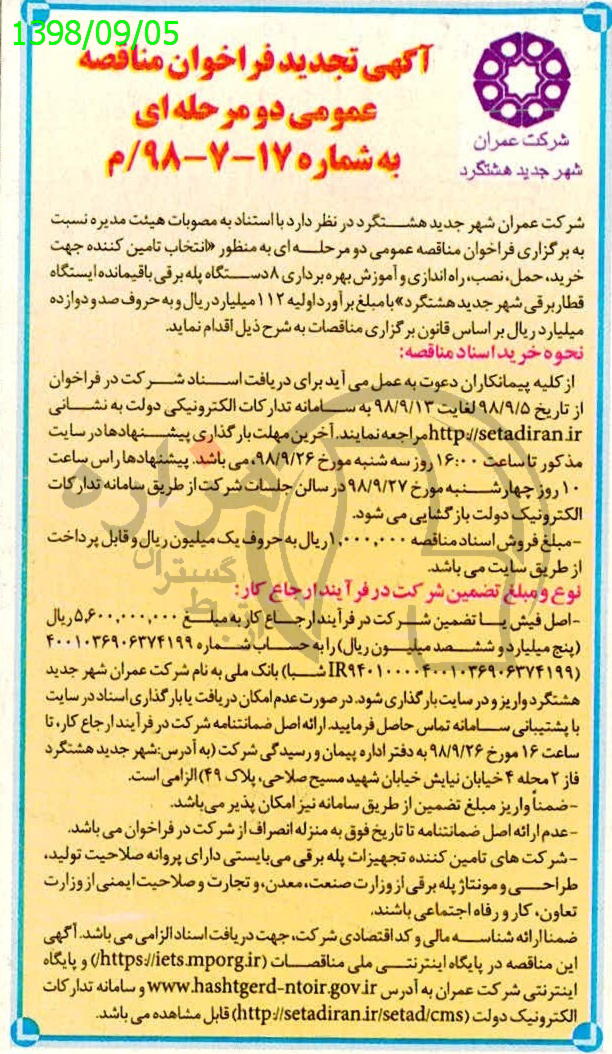 1398/09/05
آگهی تجدید فراخوان مناقصه
عمومی دو مرحله ای
به شماره ۱۷-۷-۹۸/م
شرکت عمران
شهر جدید هشتگرد
شرکت عمران شهر جدید هشتگرد در نظر دارد با استناد به مصوبات هیئت مدیره نسبت
به برگزاری فراخوان مناقصه عمومی دو مرحله ای به منظور «انتخاب تامین کننده جهت
خرید، حمل، نصب، راه اندازی و آموزش بهره برداری ۸دستگاه پله برقی باقیمانده ایستگاه
قطار برقی شهر جدید هشتگرد» با مبلغ برآورد اولیه ۱۱۲ میلیارد ریال و به حروف صد و دوازده
میلیارد ریال بر اساس قانون برگزاری مناقصات به شرح ذیل اقدام نماید.
نحوه خرید اسناد مناقصه:
از کلیه پیمانکاران دعوت به عمل می آید برای دریافت اسناد شرکت در فراخوان
از تاریخ ۹۸/۹/۵ لغایت ۹۸/۹/۱۳ به سامانه تدارکات الکترونیکی دولت به نشانی
http://setadiran.ir مراجعه نمایند. آخرین مهلت بارگذاری پیشنهادها در سایت
مذکور تا ساعت ۱۶:۰۰ روز سه شنبه مورخ ۹۸/۹/۲۶، می باشد. پیشنهادها راس ساعت
۱۰ روز چهارشنبه مورخ ۹۸/۹/۲۷ در سالن جلسات شرکت از طریق سامانه تدارکات
الکترونیک دولت بازگشایی می شود.
-مبلغ فروش اسناد مناقصه ۱,۰۰۰,۰۰۰ ریال به حروف یک میلیون ریال و قابل پرداخت
از طریق سایت می باشد.
نوع و مبلغ تضمین شرکت در فرآیند ارجاع کار:
-اصل فیش یا تضمین شرکت در فرآیند ارجاع کار به مبلغ ۵,۶۰۰,۰۰۰,۰۰۰ ریال
(پنج میلیارد و ششصد میلیون ریال) را به حساب شماره ۴۰۰۱۰۳۶۹۰۶۳۷۴۱۹۹
(IR۹۴۰۱۰۰۰۰۴۰۰۱۰۳۶۹۰۶۳۷۴۱۹۹ شبا) بانک ملی به نام شرکت عمران شهر جدید
هشتگرد واریز و در سایت بارگذاری شود. در صورت عدم امکان دریافت یا بارگذاری اسناد در سایت
با پشتیبانی سامانه تماس حاصل فرمایید. ارائه اصل ضمانتنامه شرکت در فرآیند ارجاع کار، تا
ساعت ۱۶ مورخ ۹۸/۹/۲۶ به دفتر اداره پیمان و رسیدگی شرکت (به آدرس:شهر جدید هشتگرد
فاز ۲ محله ۴ خیابان نیایش خیابان شهید مسیح صلاحی، پلاک ۴۹) الزامی است.
-ضمناً واریز مبلغ تضمین از طریق سامانه نیز امکان پذیر می باشد.
-عدم ارائه اصل ضمانتنامه تا تاریخ فوق به منزله انصراف از شرکت در فراخوان می باشد.
-شرکت های تامین کننده تجهیزات پله برقی می بایستی دارای پروانه صلاحیت تولید،
طراحی و مونتاژ پله برقی از وزارت صنعت، معدن، و تجارت و صلاحیت ایمنی از وزارت
تعاون، کار و رفاه اجتماعی باشند.
ضمنا ارائه شناسه مالی و کد اقتصادی شرکت، جهت دریافت اسناد الزامی می باشد. آگهی
این مناقصه در پایگاه اینترنتی ملی مناقصات (https://iets.mporg.ir/) و پایگاه
اینترنتی شرکت عمران به آدرس www.hashtgerd-ntoir.gov.ir و سامانه تدارکات
الکترونیک دولت (http://setadiran.ir/setad/cms) قابل مشاهده می باشد.